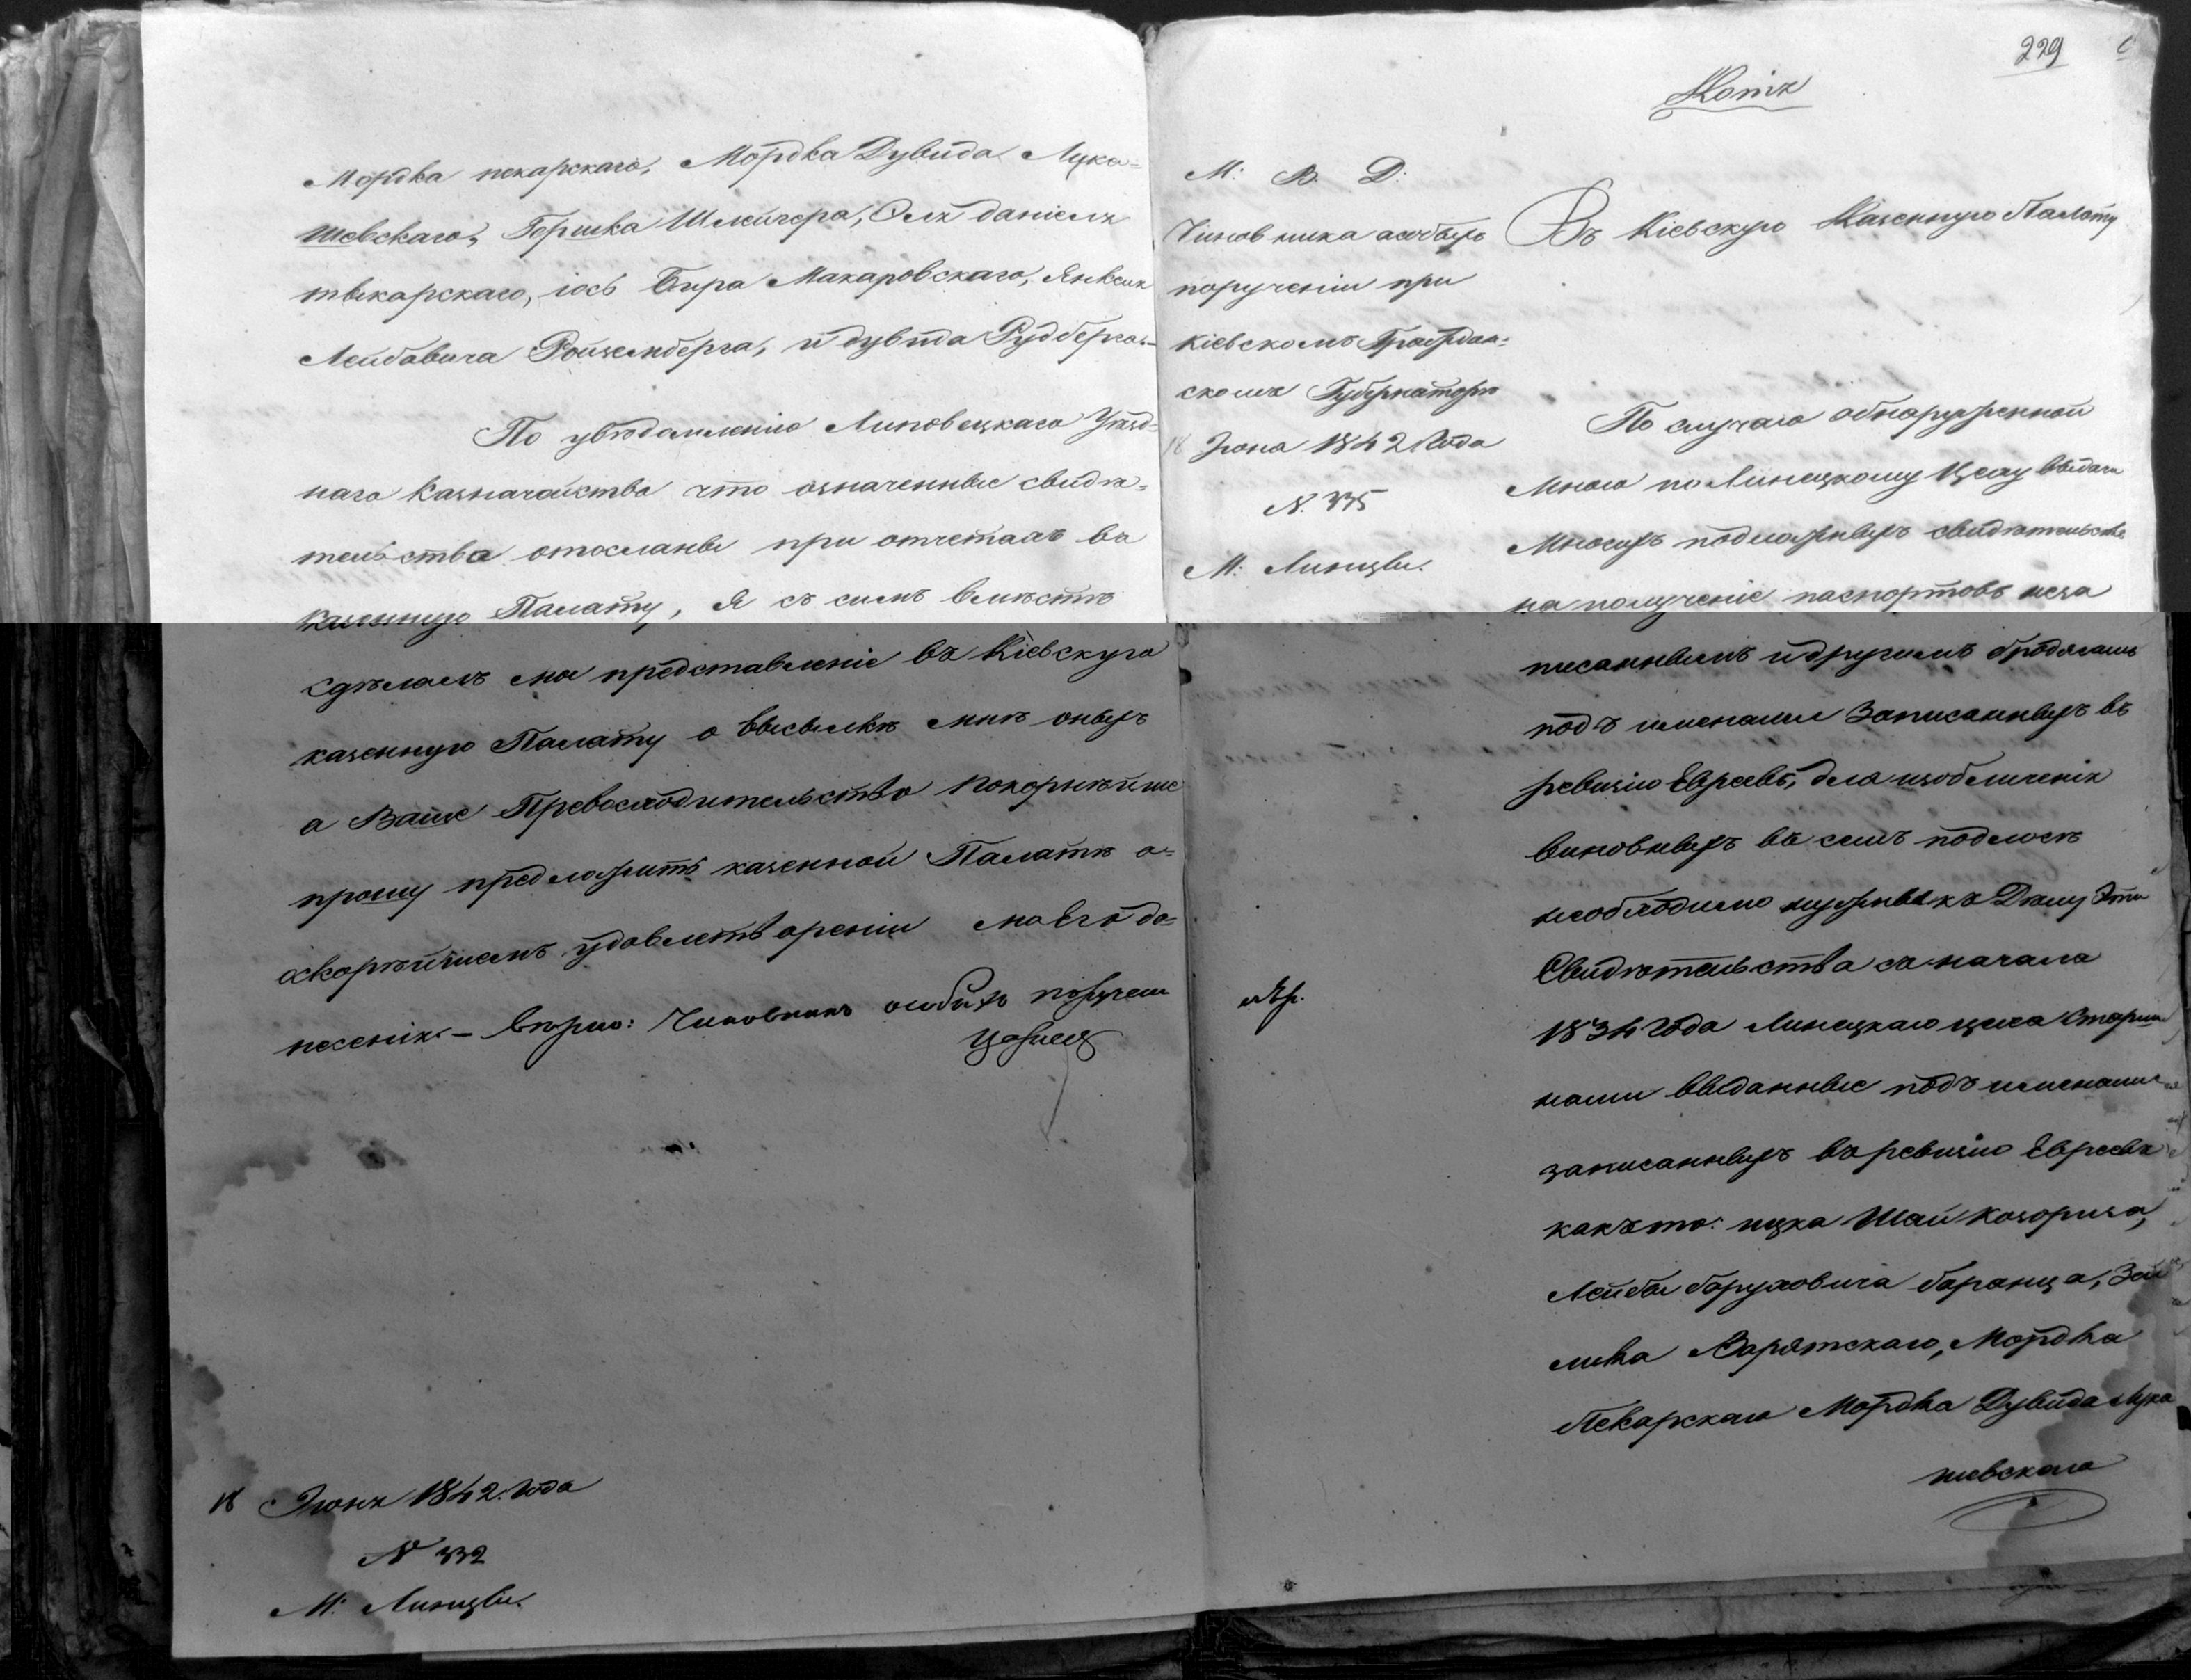 Мордка пекарскаго, Мордка Дувида Лука=
шевскаго, Гершка Шлейчера, Селъ даніелъ
твекарскаго, іось Бера Макаровскаго, Янкеля
Лейбавича Ройзенберга, и дувида Рудберга.–
По увѣдомленію Липовецкаго Уѣзд=
наго Казначейства что означенные свидѣ=
тельства отосланы при отчетахъ въ
казенную Палату, я съ симъ вмѣстѣ
сдѣлалъ мое представленіе въ Кіевскую
казенную Палату о высылкѣ мнѣ оныхъ
а Ваше Превосходительство покорнѣйше
прошу предложить казенной Палатѣ о=
скорѣйшемъ удовлетвореніи моего до=
несенія.– Вѣрно: Чиновникъ особыхъ порученій
18 Іюня 1842. года
N 332
М: Линцы.
229
Копія
М: В. Д:
Чиновника особыхъ
порученіи при
Кіевскомъ Граждан=
скомъ Губернаторѣ
18 Іюня 1842 Года
N. 335
М: Линцы.
Въ Кіевскую Казенную Палату
По случаю обнаруженной
Мною по Линецкому Цеху выдачи
Многихъ подложныхъ свидѣтельствъ
на полученіе паспортовъ неза
писаннымъ и другимъ бродягамъ
подъ именами Записанныхъ въ
ревизію Евреевъ, для изобличенія
виновныхъ въ семъ подлогѣ
необходимо нужны къ Дѣлу Эти
Свидѣтельства съ начала
1834 года Линецкаго цеха Старши
нами выданные подъ именами
записанныхъ въ ревизію Евреевъ
какъ то: ицка Шай Козориза,
Лейбы баруховича баранца, Зей
лика Зарятскаго, Мордка
Пекарскаго Мордка Дувида Лука
шевскаго